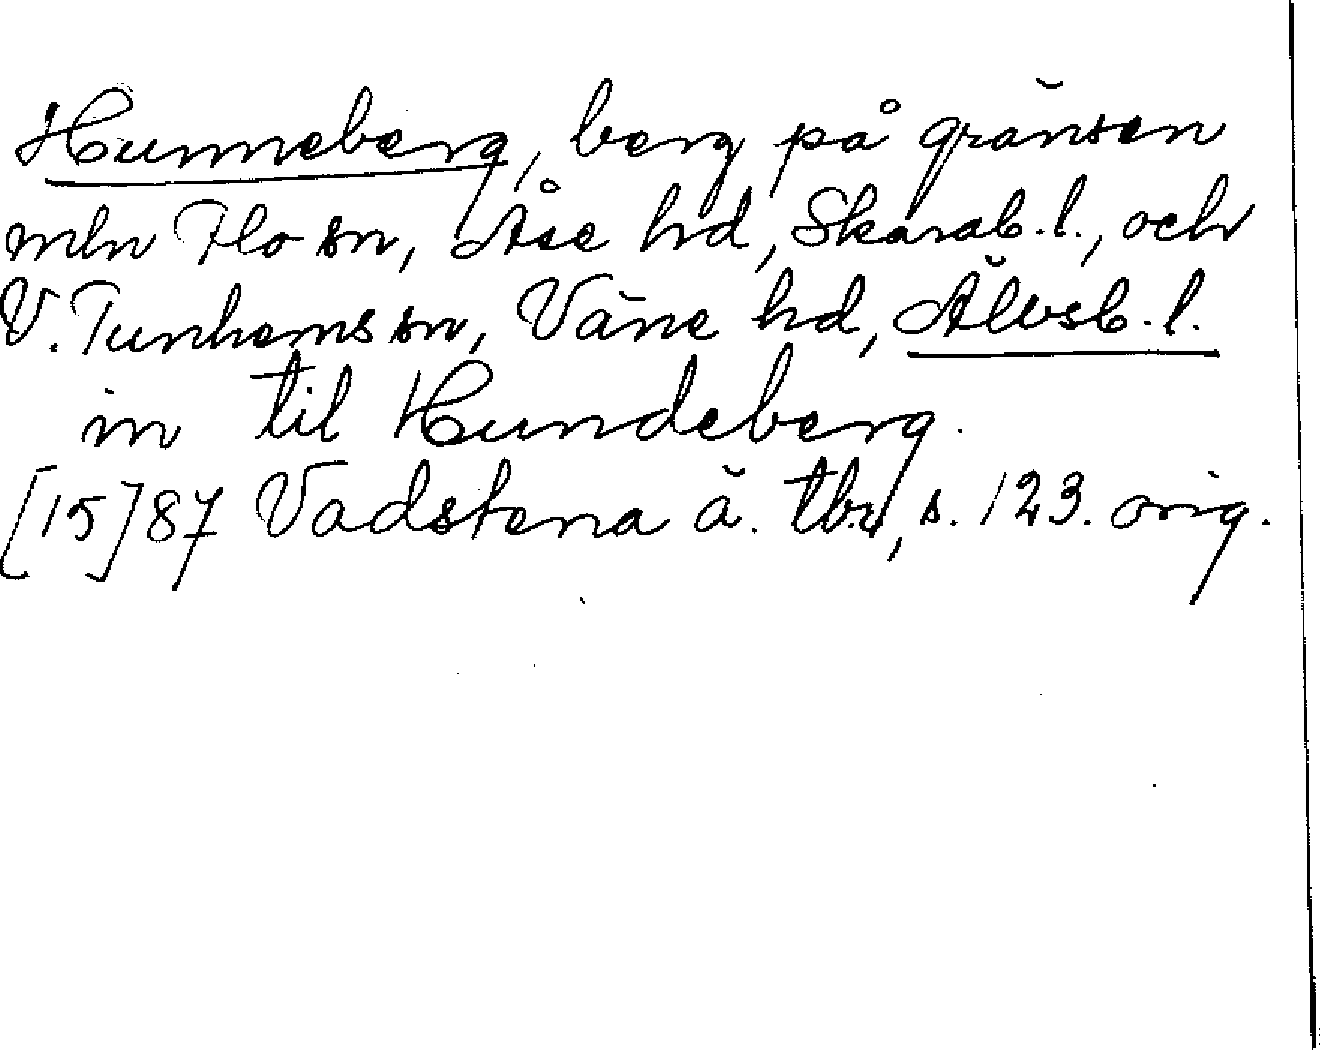 Hunneberg, berg på gränsen
mln Flo sn, Åse hd, Skarab.l., och
V. Tunhems sn, Väne hd, Älvsb.l.
in til Hundeberg.
[15]87 Vadstena ä. tbr, s. 123. orig.